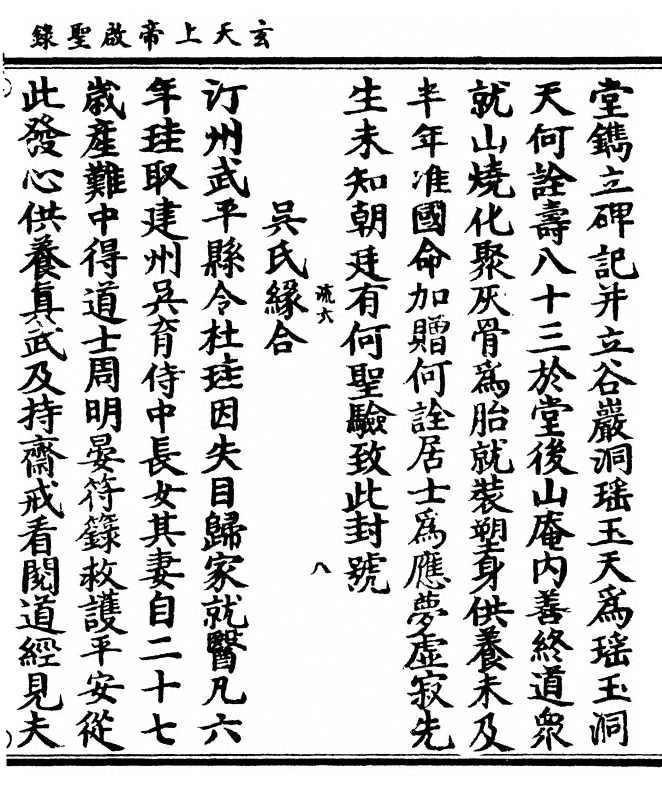 玄天上帝啟聖錄
堂鐫立碑記并立谷巖洞瑶玉天爲瑶玉洞
天何詮壽八十三於堂後山庵内善終道衆
就山燒化聚灰骨爲胎就裝塑身供養未及
半年准國命加贈何詮居士爲應夢虛寂先
生未知朝廷有何聖驗致此封號
吳氏緣合
流六
八
汀州武平縣令杜珪因失目歸家就醫凡六
年珪取建州吳育侍中長女其妻自二十七
歲産難中得道士周明晏符籙救護平安從
此發心供養真武及持齋戒看閱道經見夫